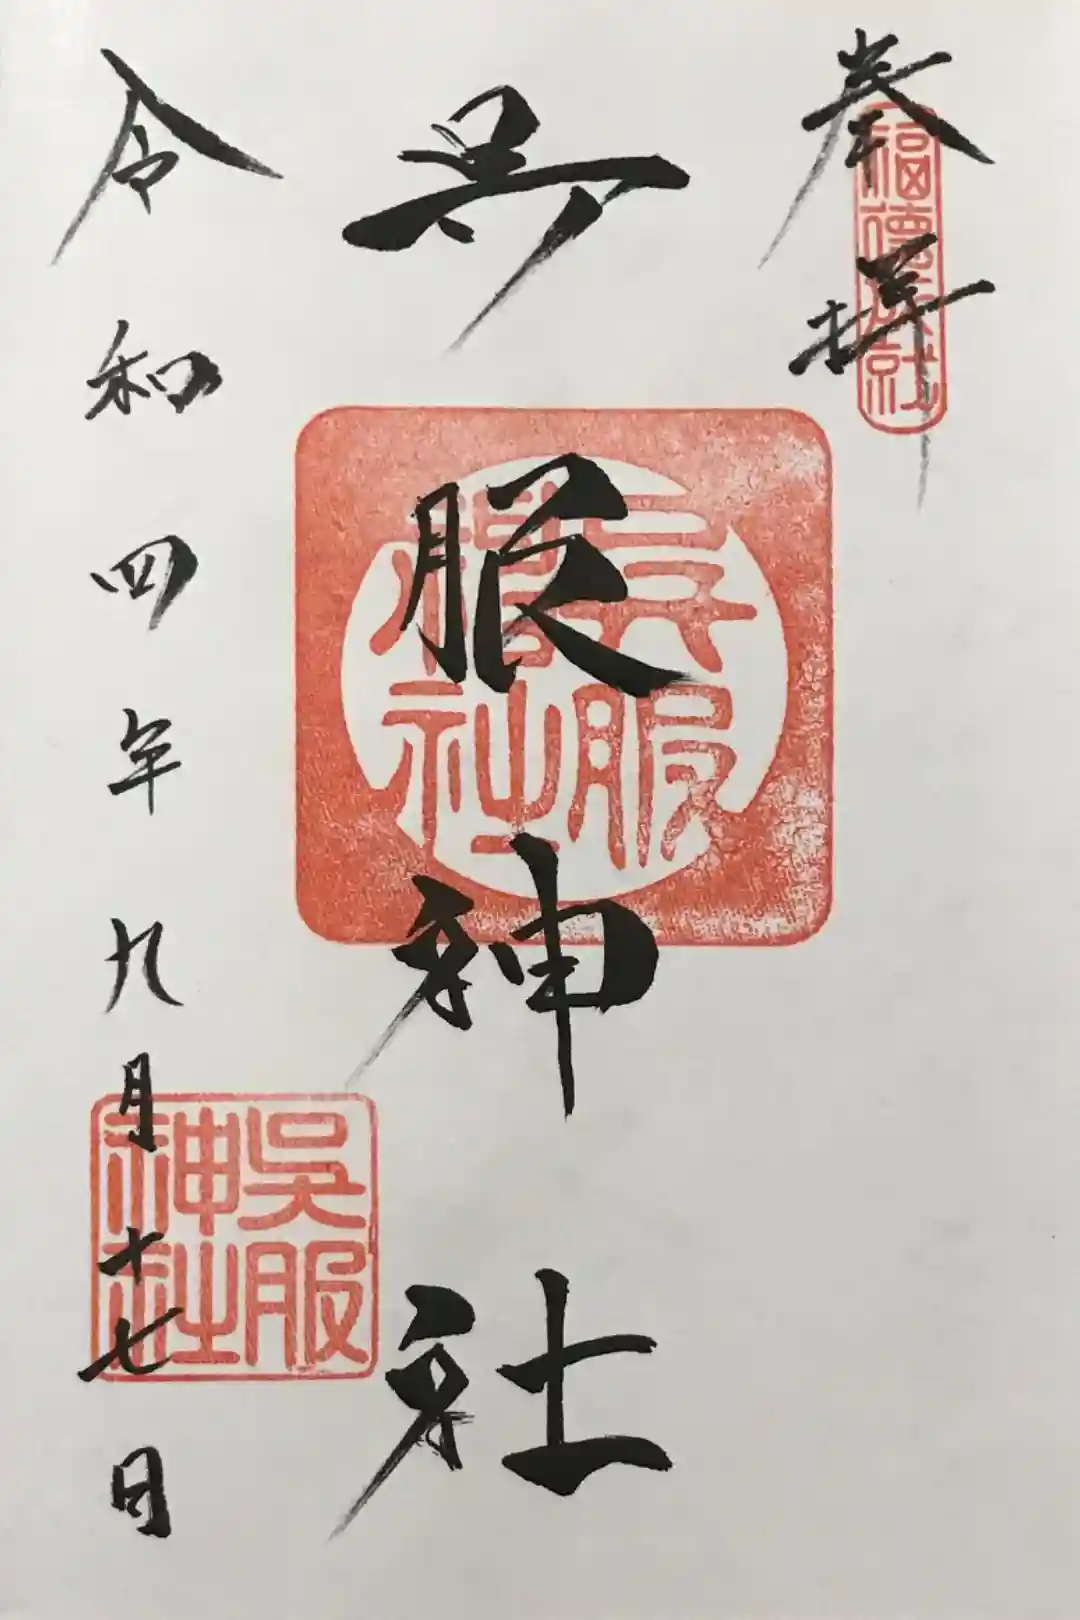 奉拝
呉服神社
令和四年九月十七日
呉服
神社
呉服
神社